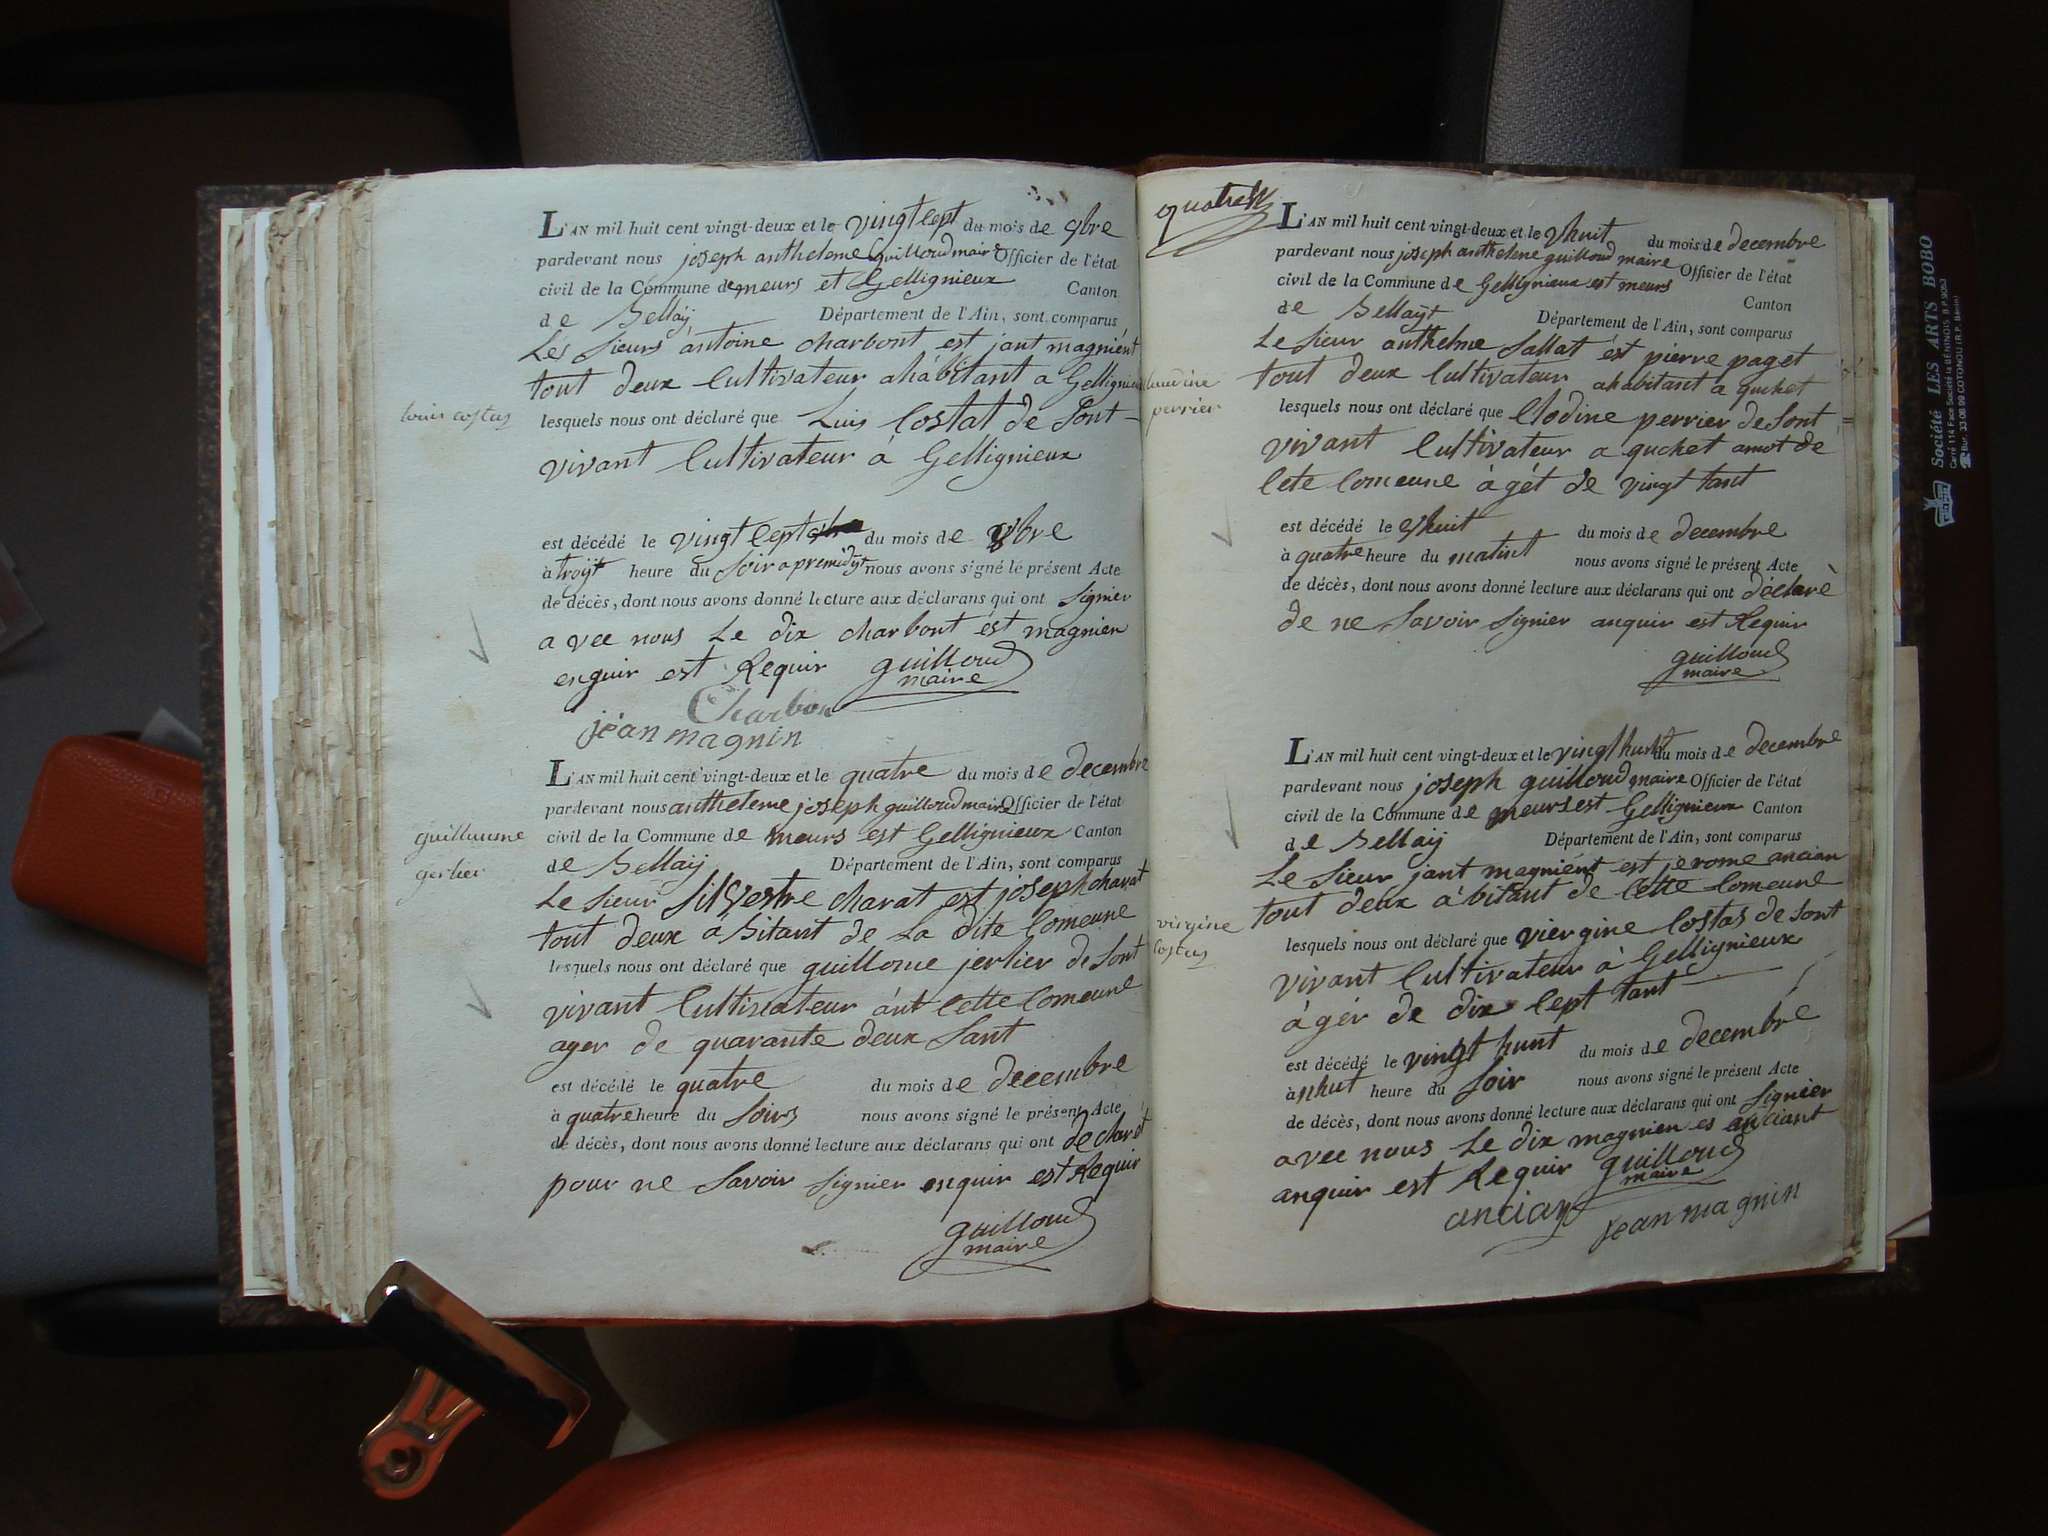 L'AN mil huit cent vingt-deux et le vingt sept du mois de 9bre
pardevant nous joseph antheleme guilloud maire Officier de l'état
civil de la Commune de meurs et Gellignieux Canton
de Bellaÿ Département de l'Ain, sont comparus
Les sieurs antoine charbont est jant magnient
tout deux Cultivateur ahabitant a Gellignieux
louis costas
lesquels nous ont déclaré que Luis Costat de Sont
vivant Cultivateur a Gellignieux
est décédé le vingt sept du mois de 9bre
à troÿt heure du Soir apremidÿt nous avons signé le présent Acte
de décès, dont nous avons donné lecture aux déclarans qui ont Signier
avec nous Le dix charbont est magnien
enquir est Requir guilloud
maire
Charbon
jean magnin
L'AN mil huit cent vingt-deux et le quatre du mois de decembre
pardevant nous antheleme joseph guilloud maire Officier de l'état
guillaume
gerlier
civil de la Commune de meurs est Gellignieux Canton
de Bellaÿ Département de l'Ain, sont comparus
Le sieur Silvestre charat est joseph charat
tout deux abitant de La dite Comeune
lesquels nous ont déclaré que guillome jerlier de Sont
vivant Cultivateur ant Cette Comeune
ager de quarante deux Sant
est décédé le quatre du mois de decembre
à quatre heure du Soirs nous avons signé le présent Acte
de décès, dont nous avons donné lecture aux déclarans qui ont declaret
pour ne Savoir Signier enquir est Requir
guilloud
maire
L'AN mil huit cent vingt-deux et le huit du mois de decembre
pardevant nous joseph antheleme guilloud maire Officier de l'état
civil de la Commune de Gellignieux est meurs Canton
de Bellaÿt Département de l'Ain, sont comparus
Le sieur anthelme Sallat est pierre paget
tout deux Cultivateur ahabitant a quchet
claudine
perrier
lesquels nous ont déclaré que Clodine perrier de Sont
vivant Cultivateur a quchet amot de
Cete Comeune àgét de vingt tant
est décédé le huit du mois de decembre
à quatre heure du matint nous avons signé le présent Acte
de décès, dont nous avons donné lecture aux déclarans qui ont déclarè
de ne Savoir Signier anquir est Requir
guilloud
maire
L'AN mil huit cent vingt-deux et le vingt huit du mois de decembre
pardevant nous joseph guilloud maire Officier de l'état
civil de la Commune de meurs est Gellignieux Canton
de Bellaÿ Département de l'Ain, sont comparus
Le Sieur jant magnient est jerome ancian
tout deux àbitant de Cette Comeune
virgine
Costas
lesquels nous ont déclaré que viergine Costas de Sont
vivant Cultivateur à Gellignieux
àgér de dix Sept tant
est décédé le vingt huit du mois de decembre
à heure du Soir nous avons signé le présent Acte
de décès, dont nous avons donné lecture aux déclarans qui ont Signier
avec nous Le dix magnien es anciant
anquir est Requir guilloud
maire
ancian
jean magnin
Société LES ARTS BOBO